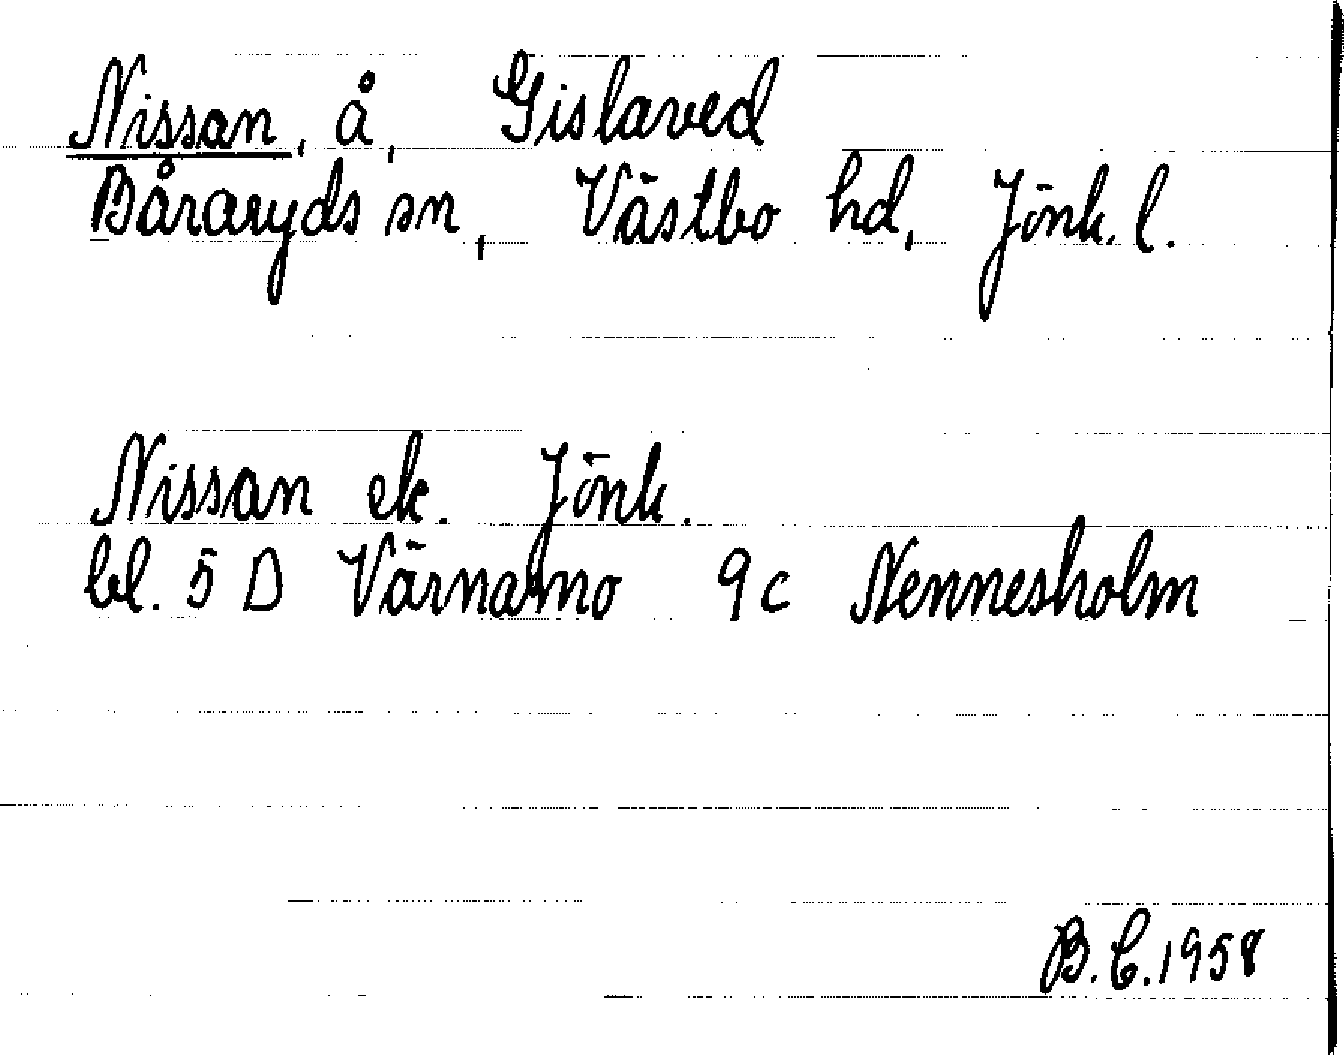 Nissan, å, Gislaved
Båraryds sn, Västbo hd, Jönk. l.
Nissan ek. Jönk.
bl. 5 D Värnamo 9c Nennesholm
B.C. 1958